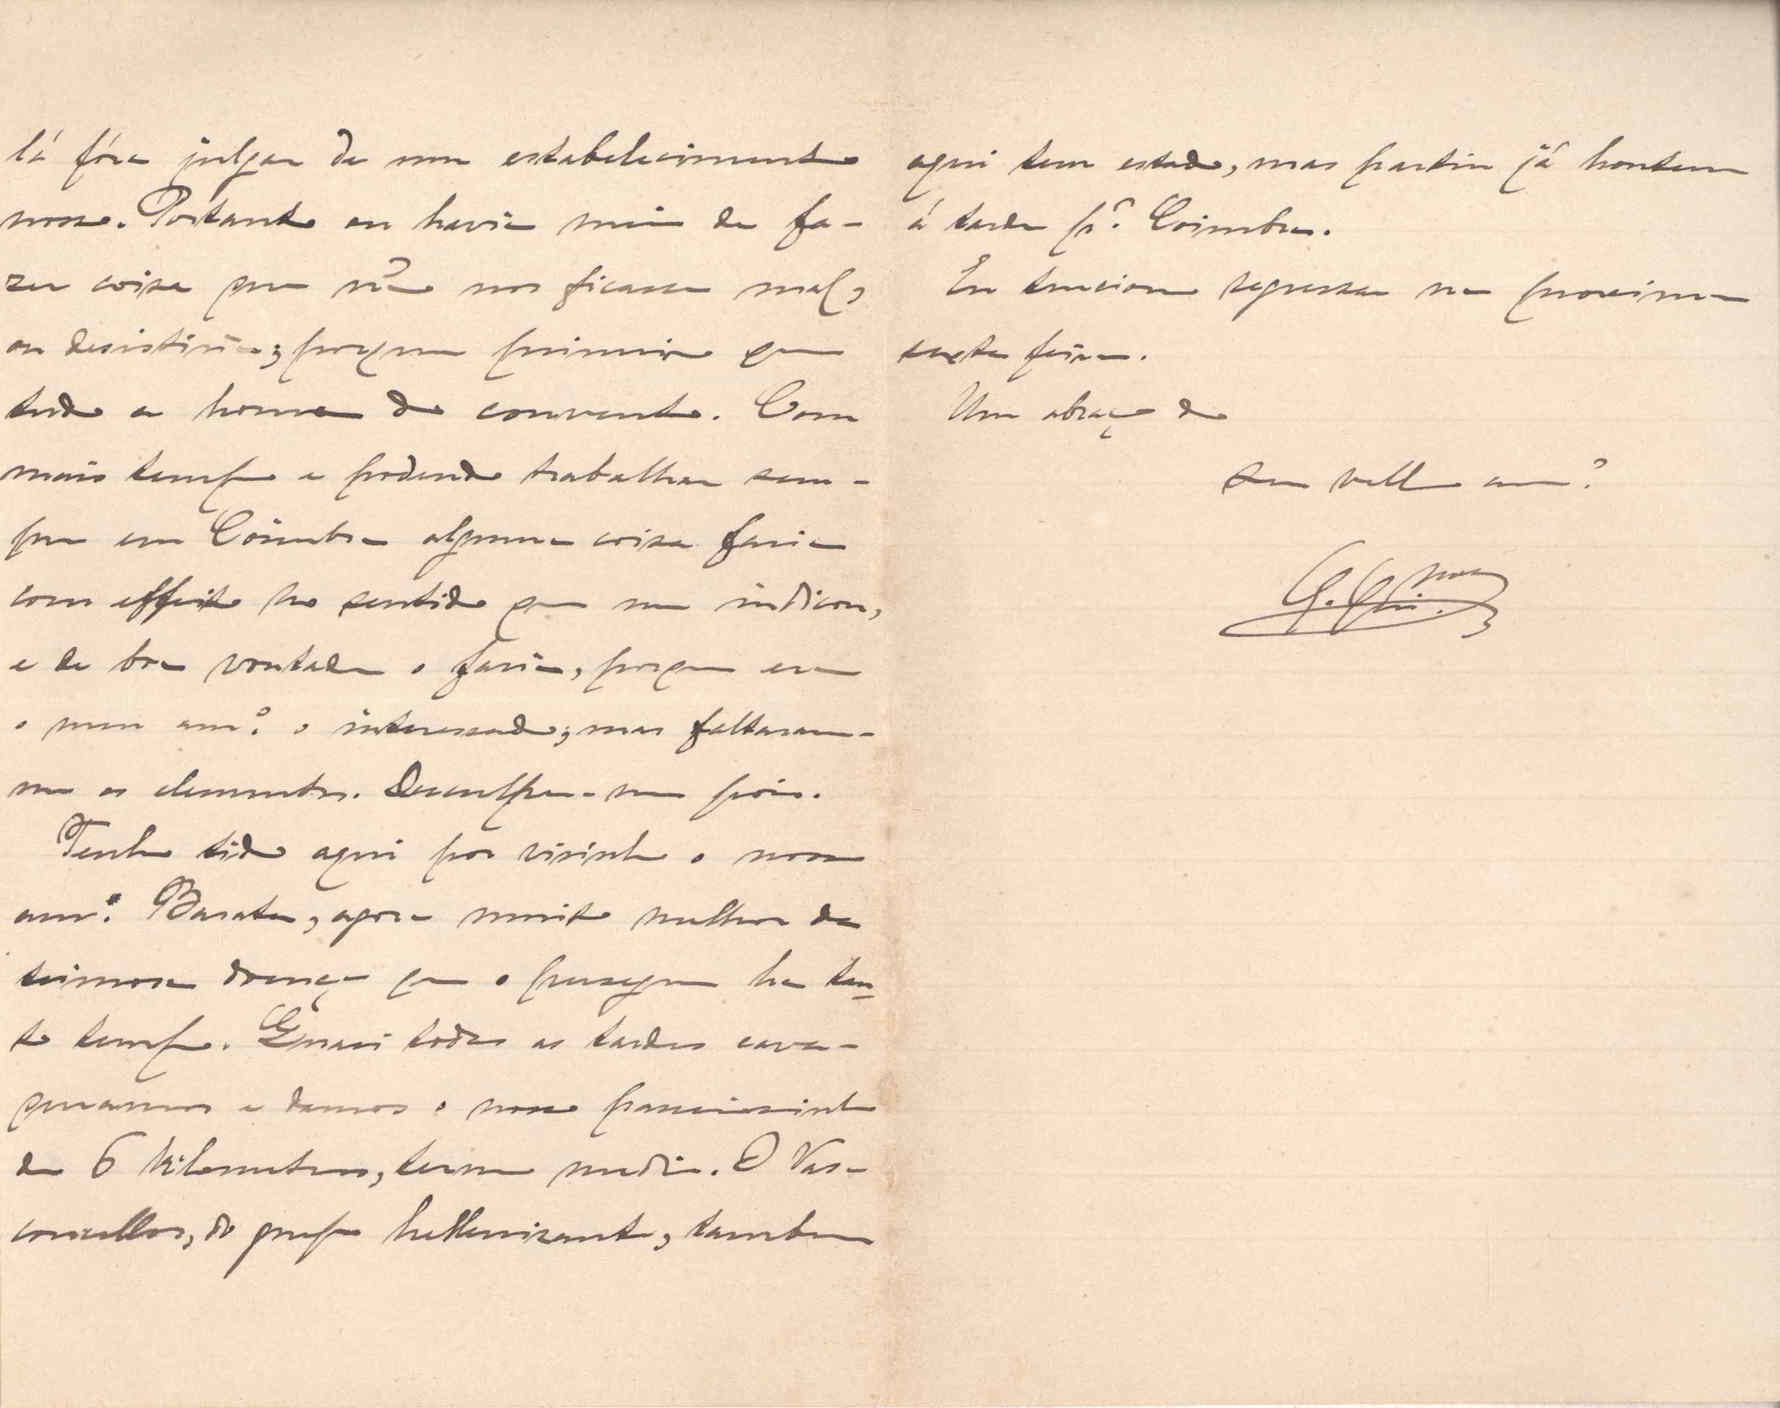 lá fóra julgar de um estabelecimento
nosso. Portanto ou havia meio de fa-
zer coisa que não nos ficasse mal,
ou desistiria; porque primeiro que
tudo a honra do convento. Com
mais tempo e podendo trabalhar sem-
pre em Coimbra alguma coisa faria
com effeito no sentido que me indicou,
e de boa vontade o faria, porque era
o meu am.º o interessado; mas faltaram-
me os elementos. Desculpe-me pois.
Tenho tido aqui por visinho o nosso
am.º Barata, agora muito melhor da
teimosa doença que o persegue ha tan-
to tempo. Quasi todas as tardes cava-
queamos e damos o nosso passeiosinho
de 6 kilometros, termo medio. O Vas-
concellos, do grupo hellenizante, tambem
aqui tem estado, mas partiu já hontem
á tarde p.ª Coimbra.
Eu tenciono regressar na proxima
sexta feira.
Um abraço do
seu velho am.º